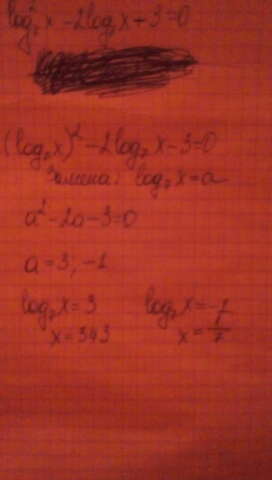 log₇²x - 2log₇x + 3 = 0
(log₇x)² - 2log₇x - 3 = 0
Замена: log₇x = a
a² - 2a - 3 = 0
a = 3; -1
log₇x = 3 log₇x = -1
x = 343 x = 1/7